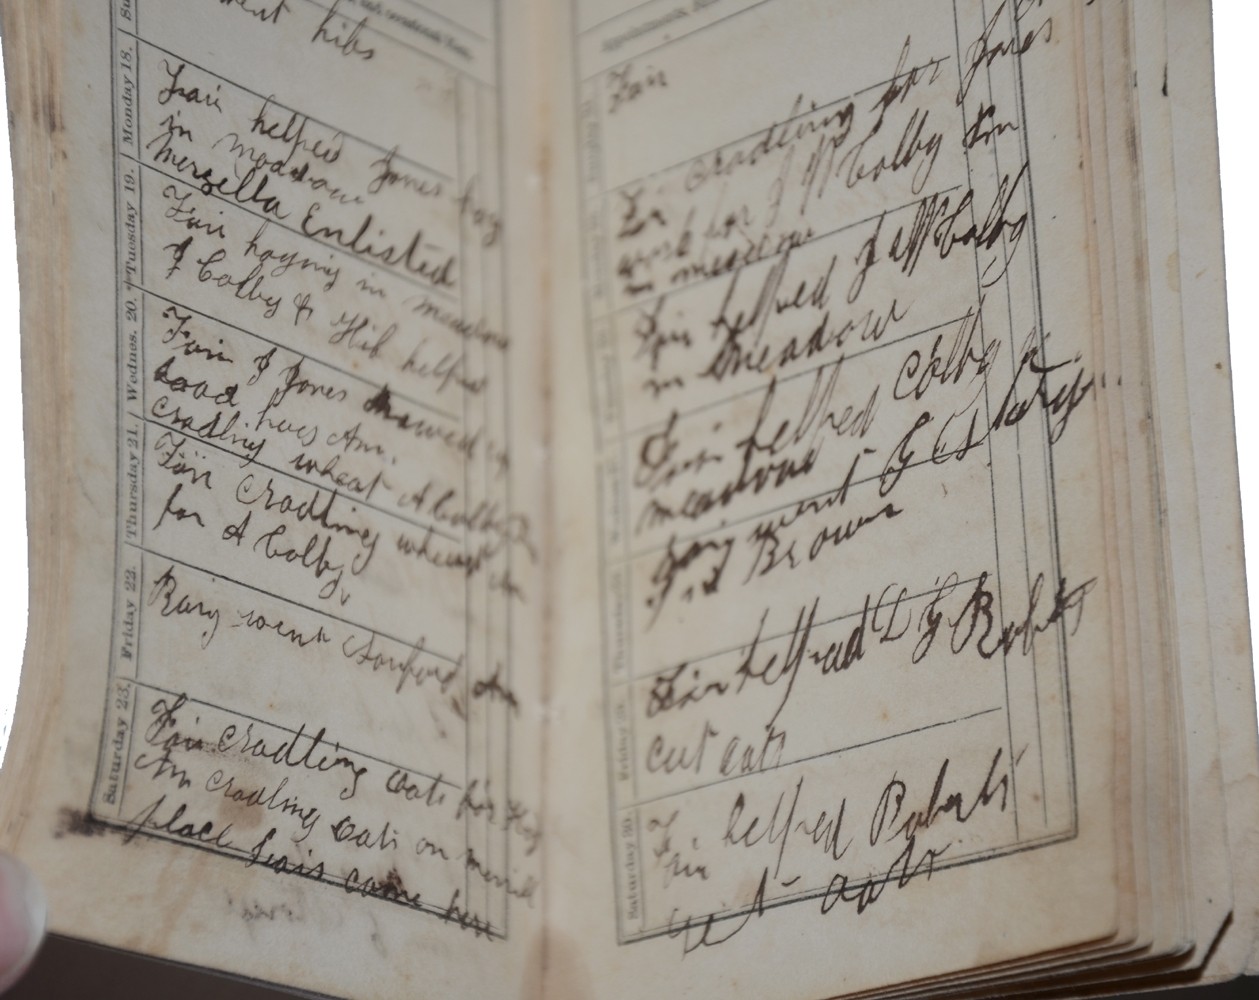 went hibs
Monday 18.
Fair helped Jones hay
in moadow
Mersella Enlisted
Tuesday 19.
Fair haying in meadow
J Colby & Hib helped
Wednes. 20.
Fair J Jones mowed
hoes Am.
cradling wheat A Colby
Thursday 21.
Fair cradling wheat Am
for A Colby
Friday 22.
Rainy went Sanford Am
Saturday 23.
Fair cradling oats for
Am cradling oats on merrill
place Lois came here
Appointments,
Fair
Fair cradling for Jones
work for J W Colby Am
in meadow
Fair helped J W Colby
in meadow
Fair helped Colby in
meadow
went G C
Brown
Friday 29.
Fair helped L G Roberts
cut oats
Saturday 30.
Fair helped Roberts
get oats